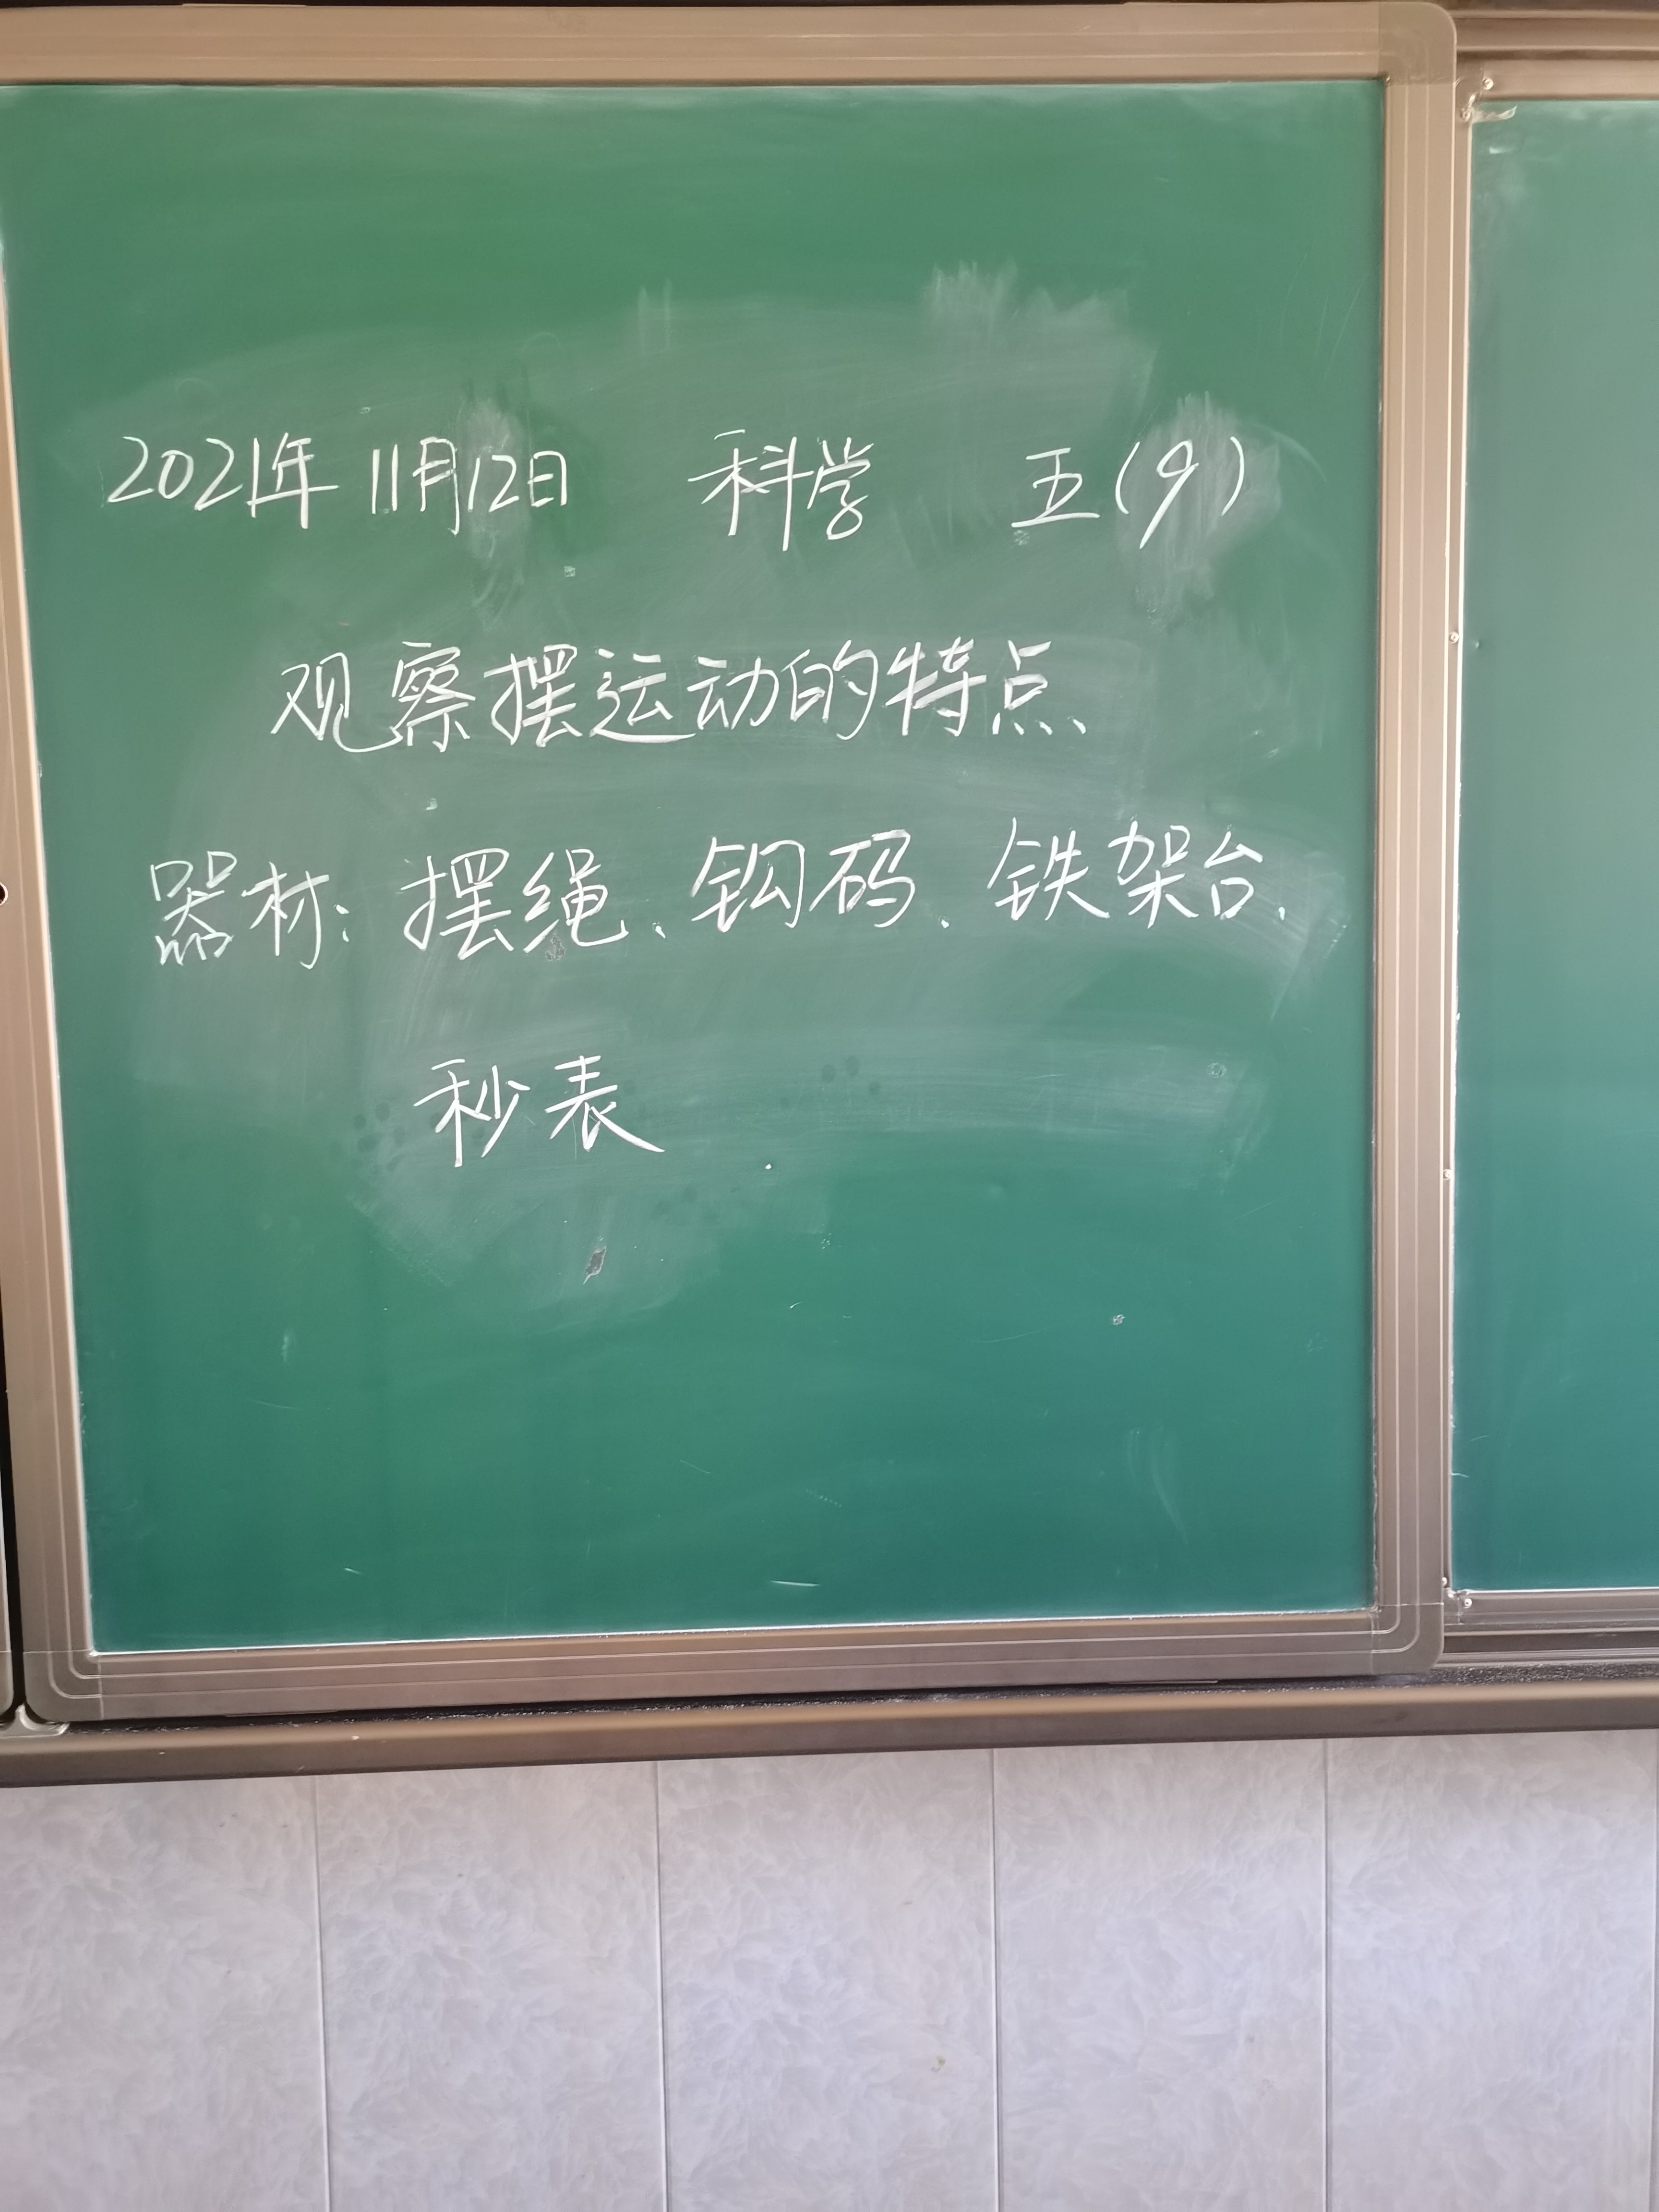 2021年11月12日 科学 五(9)
观察摆运动的特点
器材:摆绳、钩码、铁架台、
秒表